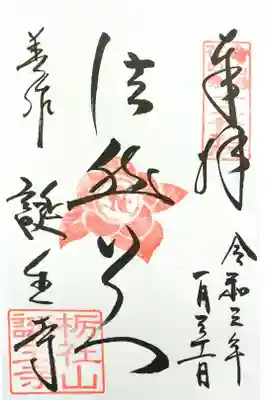 奉拝
令和三年
一月
法然上人
美作
誕生寺
栃社山
誕生寺